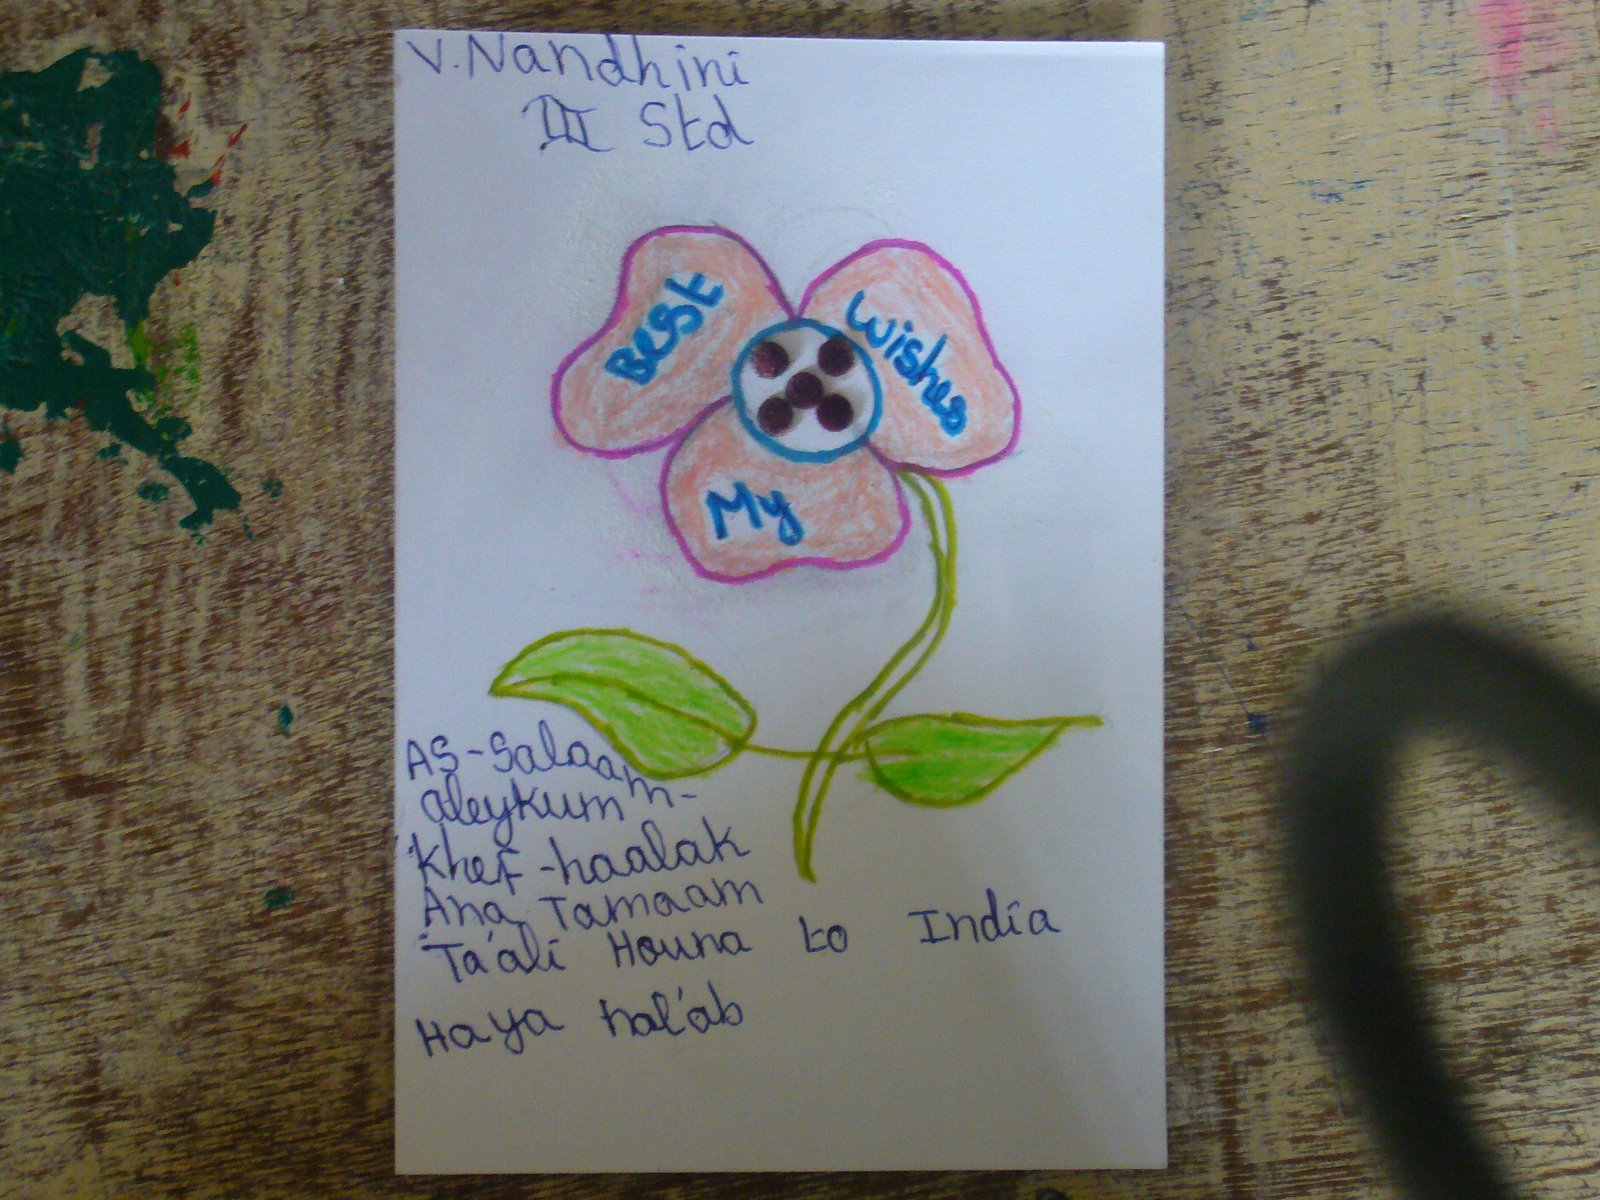 V. Nandhini
III Std
Best
Wishes
My
AS-Salaam
aleykum-
Khef-haalak
Ana Tamaam
Ta'ali Houna to India
Haya nal'ab